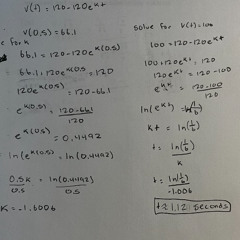 v(t) = 120-120e^kt
v(0.5) = 66.1
e for k
66.1 = 120-120e^k(0.5)
66.1 + 120e^k(0.5) = 120
120e^k(0.5) = 120-66.1
e^k(0.5) = 120-66.1 / 120
e^k(0.5) = 0.4492
ln(e^k(0.5)) = ln(0.4492)
0.5k / 0.5 = ln(0.4492) / 0.5
K = -1.6006
Solve for V(t)=100
100 = 120-120e^kt
100 + 120e^kt = 120
120e^kt = 120-100
e^kt = 120-100 / 120
ln(e^kt) = ln(1/6)
kt = ln(1/6)
t = ln(1/6) / k
t = ln(1/6) / -1.006
t ≈ 1.12 seconds